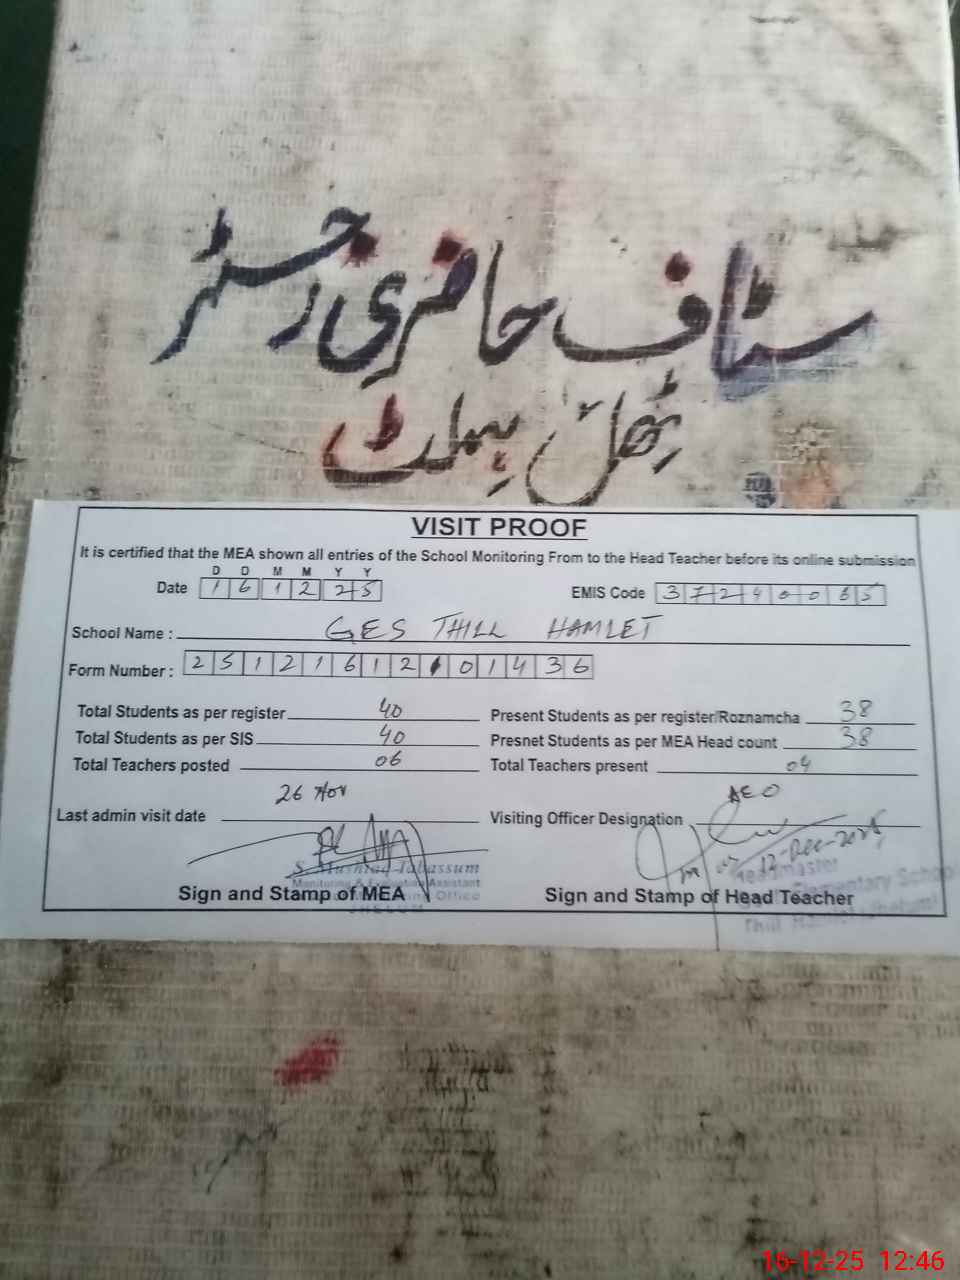 سٹاف حاضری رجسٹر
ٹھل ہملٹ
VISIT PROOF
It is certified that the MEA shown all entries of the School Monitoring From to the Head Teacher before its online submission
D D M M Y Y
Date 1 6 1 2 2 5 EMIS Code 3 7 2 4 0 0 6 5
School Name : GES THILL HAMLET
Form Number : 2 5 1 2 1 6 1 2 0 1 4 3 6
Total Students as per register 40 Present Students as per register/Roznamcha 38
Total Students as per SIS 40 Presnet Students as per MEA Head count 38
Total Teachers posted 06 Total Teachers present 04
Last admin visit date 26 Nov Visiting Officer Designation AEO
12-Dec-2025
S. Mushtaq Tabassum
Monitoring & Evaluation Assistant
Office
JHELUM
Headmaster
Elementary School
Thill Hamlet (Jhelum)
Sign and Stamp of MEA Sign and Stamp of Head Teacher
16-12-25 12:46